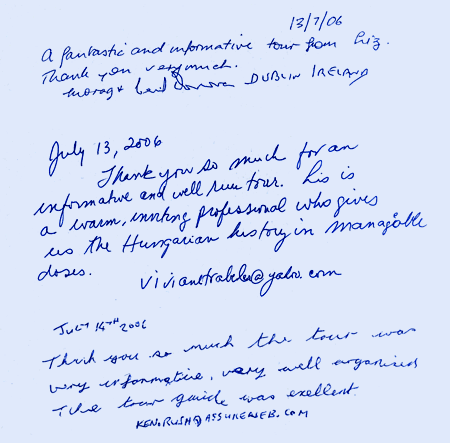 13/7/06
A fantastic and informative tour from Liz.
Thank you very much.
Morag & Donovan DUBLIN IRELAND
July 13, 2006
Thank you so much for an
informative and well run tour. Lis is
a warm, inviting professional who gives
us the Hungarian history in managable
doses.
@yahoo.com
JULY 14TH 2006
Thank you so much the tour was
very informative, very well organised
The tour guide was exellent.
KEN.RUSH@ASSUREWEB.COM